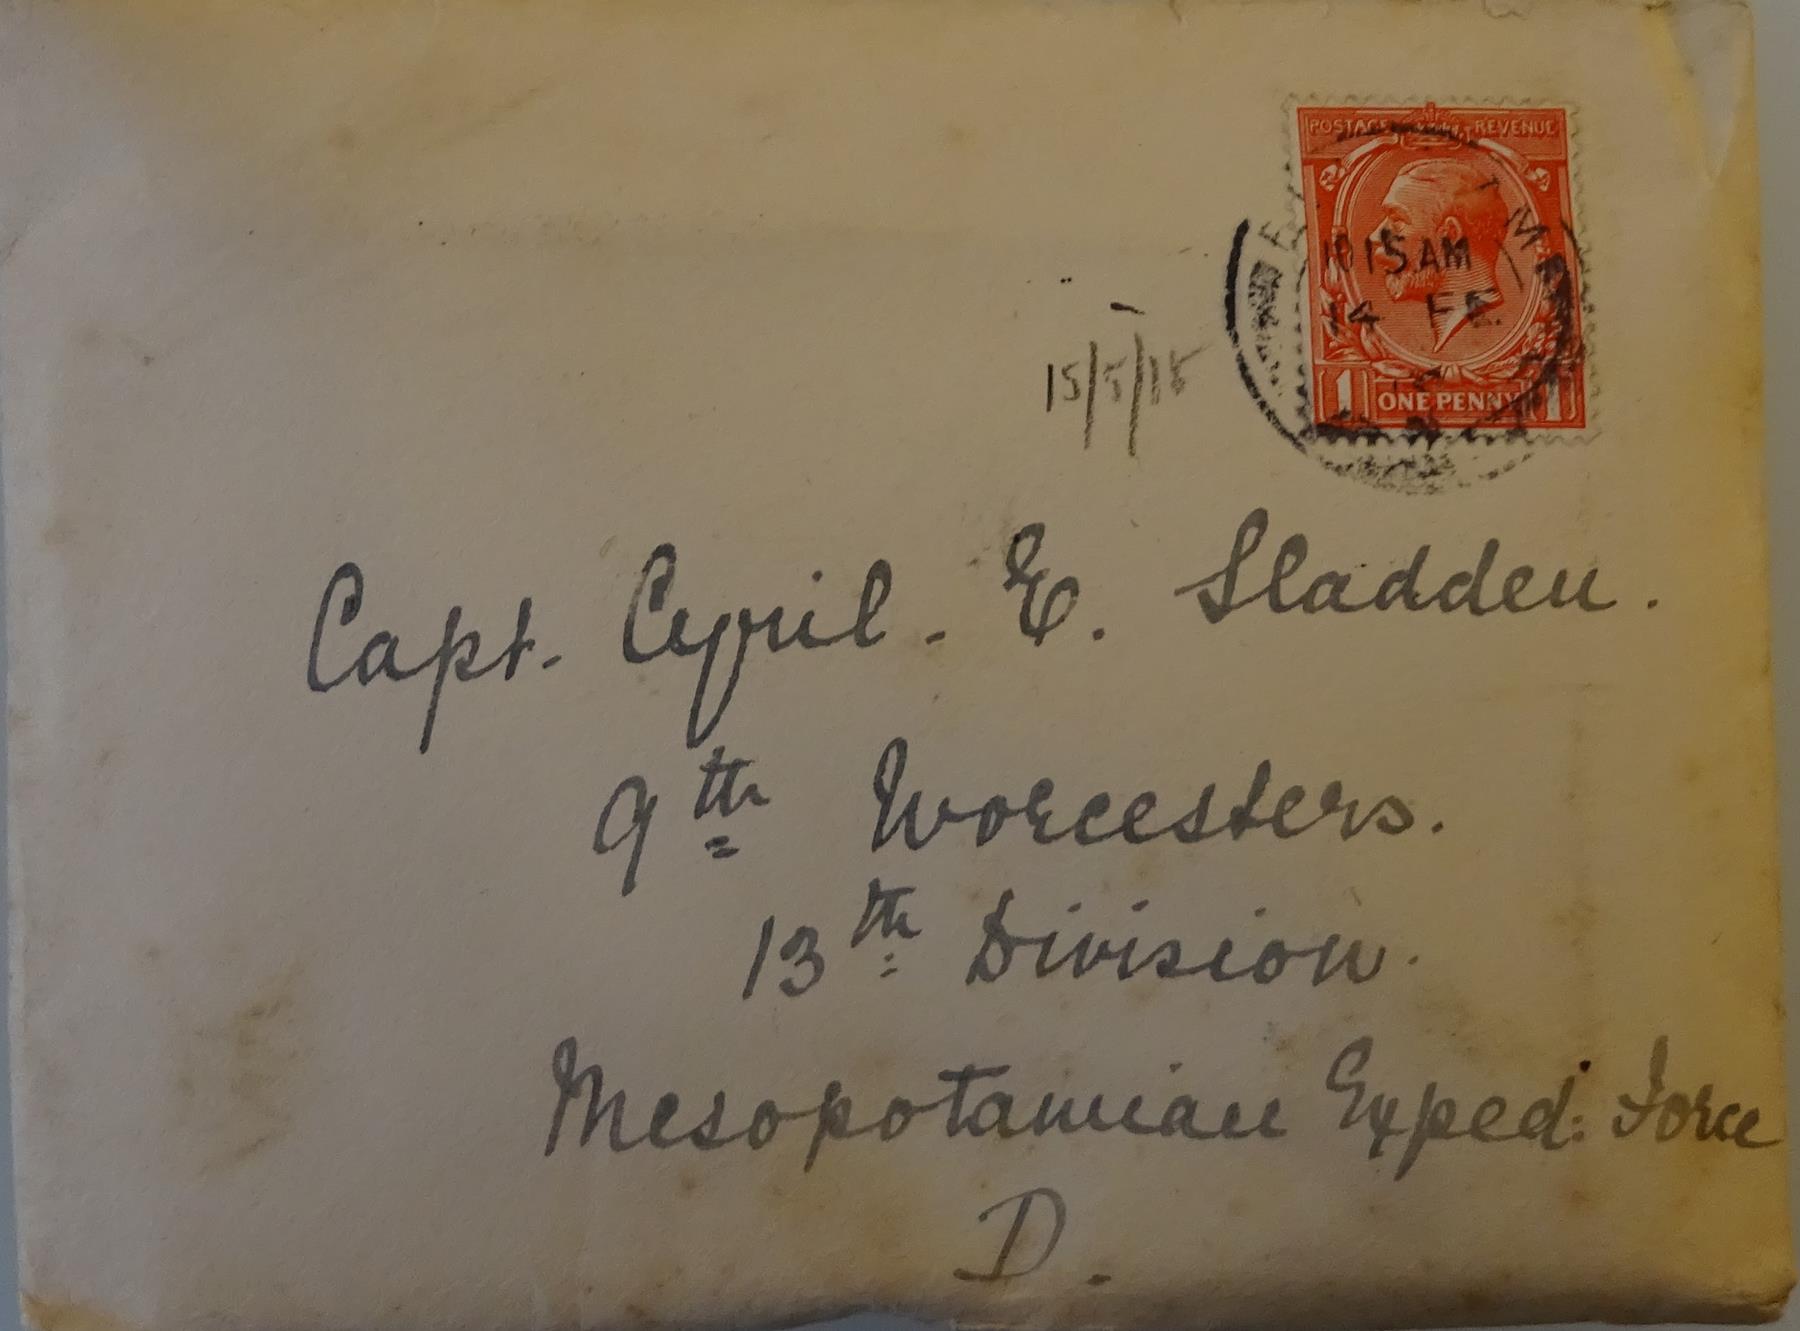 POSTAGE REVENUE
10 15 AM
14 FE
1 ONE PENNY 1
15/5/15
Capt. Cyril. E. Sladden.
9th Worcesters.
13th Division.
Mesopotamian Exped: Force
D.